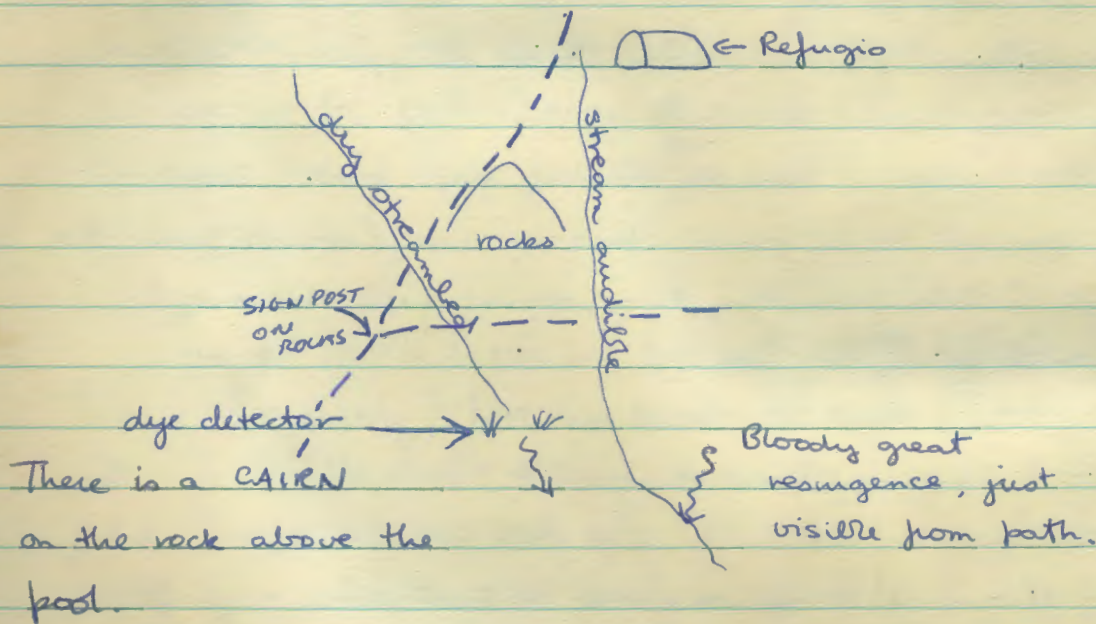 ← Refugio
dry streambed
stream audible
rocks
SIGN POST
ON
ROCKS
dye detector
There is a CAIRN
on the rock above the
pool.
Bloody great
resurgence, just
visible from path.